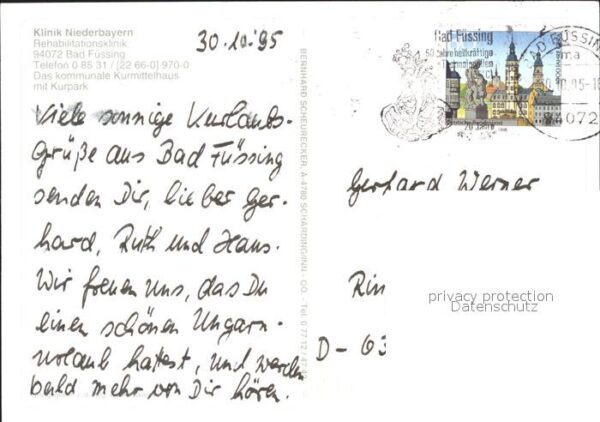 Klinik Niederbayern
Rehabilitationsklinik
94072 Bad Füssing
Telefon 0 85 31 / (22 66-0) 970-0
Das kommunale Kurmittelhaus
mit Kurpark
30.10.95
Viele sonnige Kurlaubs-
grüße aus Bad Füssing
senden Dir, lieber Ger-
hard, Ruth und Hans.
Wir freuen uns, das Du
einen schönen Ungarn-
urlaub hattest, und werden
bald mehr von Dir hören.
BERNHARD SCHEURECKER, A-4780 SCHÄRDING/INN - OÖ. - Tel. 0 77 12 /
Bad Füssing
50 Jahre heilkräftige
Thermalquellen
20 Jahre
BAD FÜSSING
30.10.95-18
94072
Gerhard Werner
Rin
privacy protection
Datenschutz
D - 63